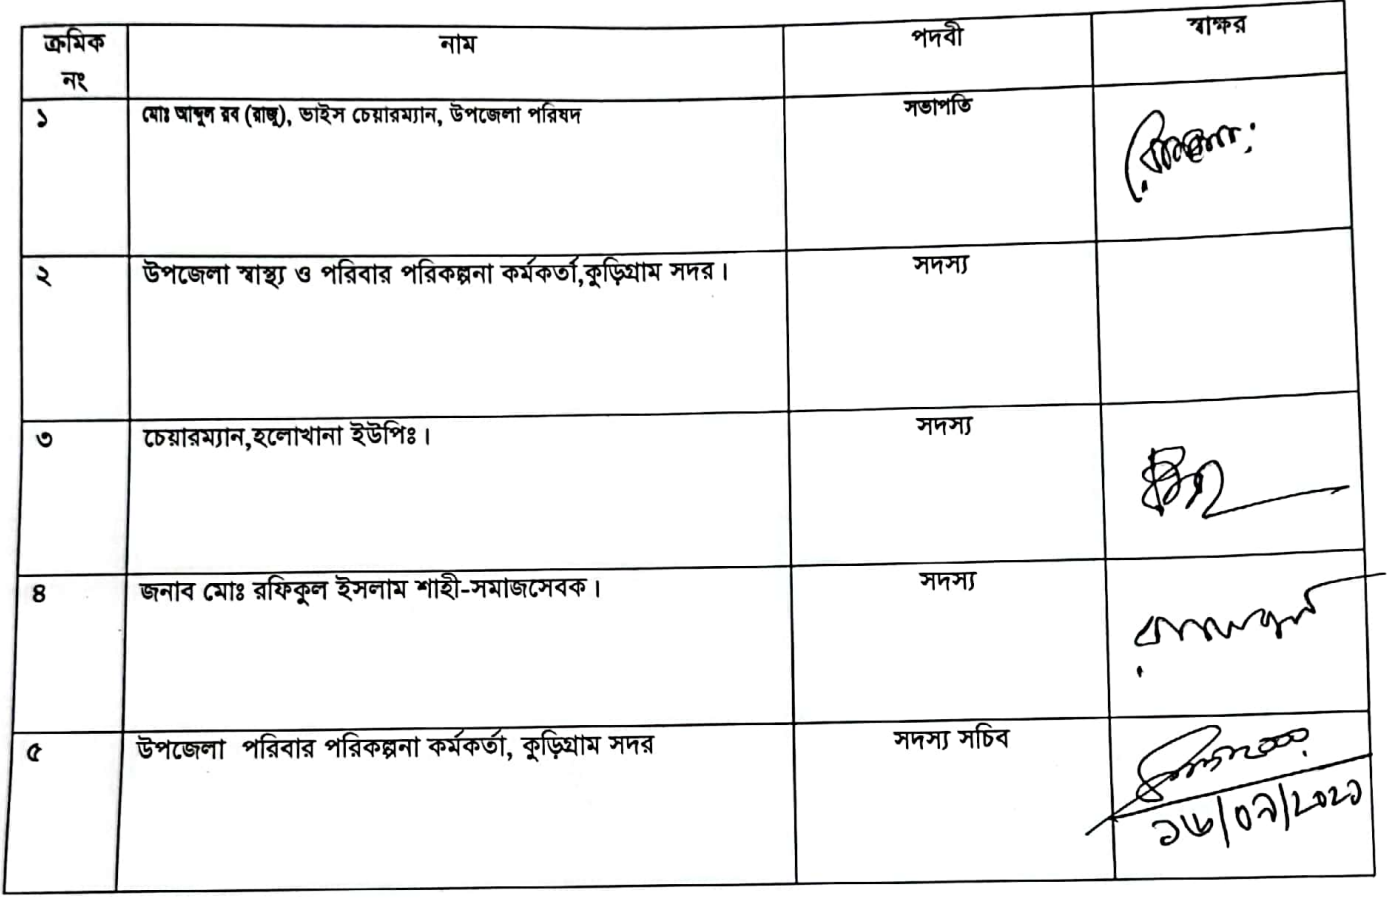 ক্রমিক নং নাম পদবী স্বাক্ষর
১ মোঃ আব্দুল রব (রাজু), ভাইস চেয়ারম্যান, উপজেলা পরিষদ সভাপতি
২ উপজেলা স্বাস্থ্য ও পরিবার পরিকল্পনা কর্মকর্তা,কুড়িগ্রাম সদর। সদস্য
৩ চেয়ারম্যান,হলোখানা ইউপিঃ। সদস্য
৪ জনাব মোঃ রফিকুল ইসলাম শাহী-সমাজসেবক। সদস্য
৫ উপজেলা পরিবার পরিকল্পনা কর্মকর্তা, কুড়িগ্রাম সদর সদস্য সচিব